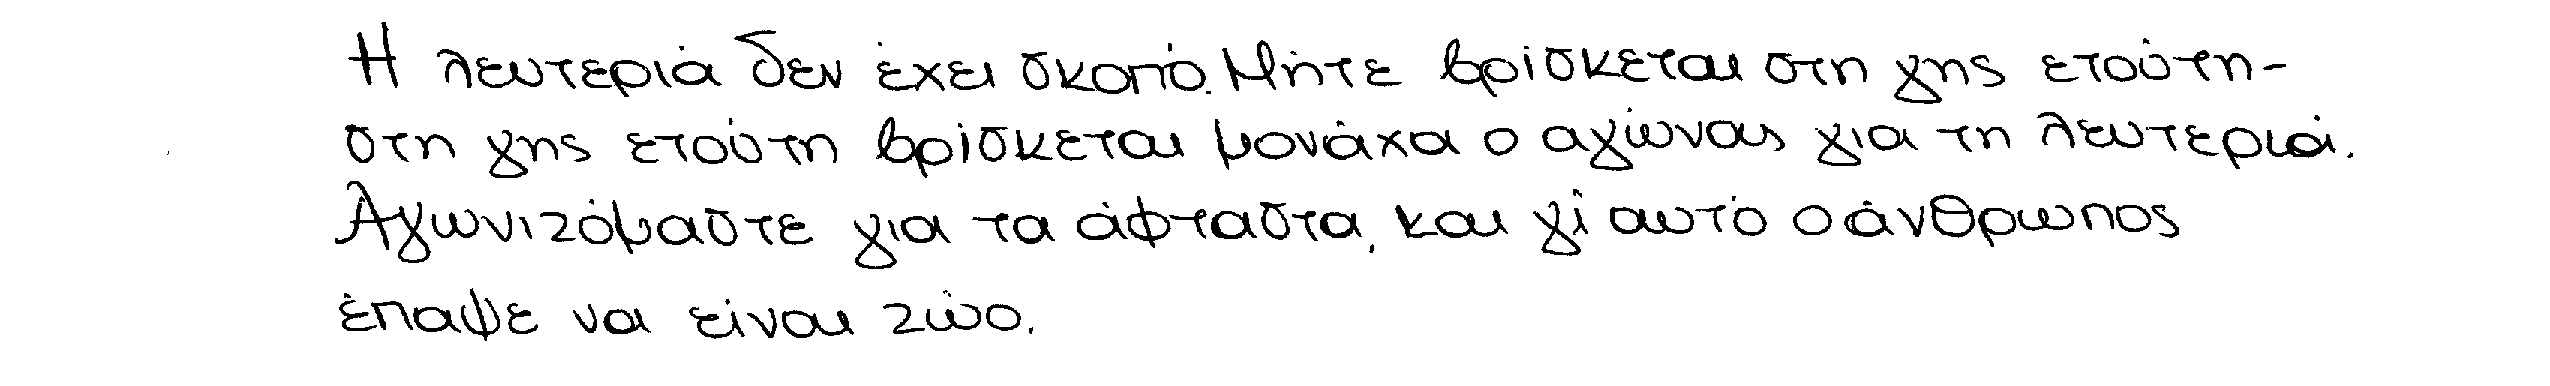 Η λευτεριά δεν έχει σκοπό. Μήτε βρίσκεται στη γης ετούτη-
στη γης ετούτη βρίσκεται μονάχα ο αγώνας για τη λευτεριά.
Αγωνιζόμαστε για τα άφταστα, και γι αυτό ο άνθρωπος
έπαψε να είναι ζώο.